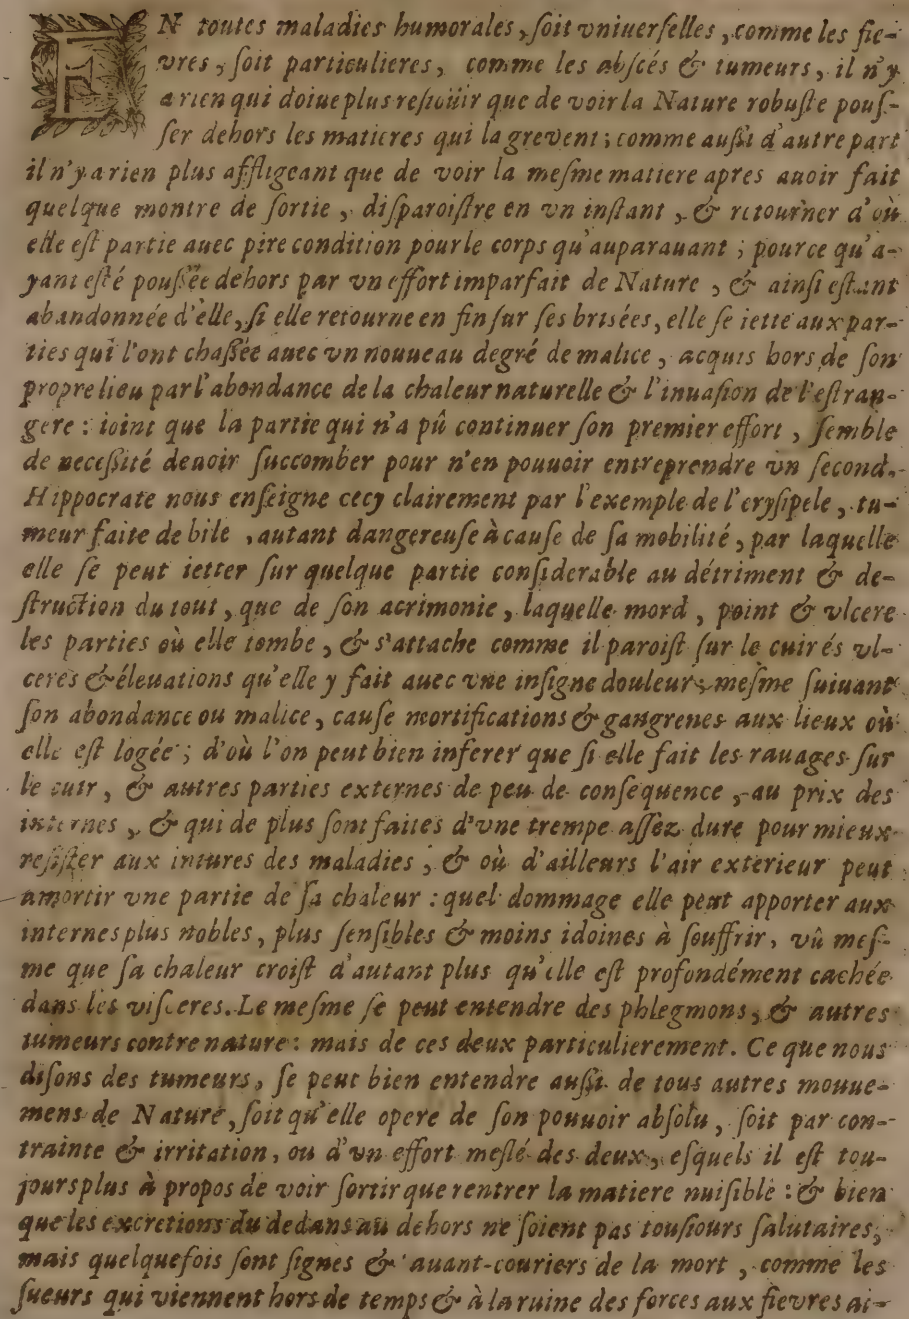 EN toutes maladies humorales, ſoit vniuerſelles, comme les fie-
vres, ſoit particulieres, comme les abſcés & tumeurs, il n'y
a rien qui doiue plus reſiouïr que de voir la Nature robuſte pouſ-
ſer dehors les matieres qui la grevent; comme auſſi d'autre part
il n'y a rien plus affligeant que de voir la meſme matiere apres auoir fait
quelque montre de ſortie, diſparoiſtre en vn inſtant, & retourner d'où
elle eſt partie auec pire condition pour le corps qu'auparauant; pource qu'a-
yant eſté pouſſée dehors par vn effort imparfait de Nature, & ainſi eſtant
abandonnée d'elle, ſi elle retourne en fin ſur ſes brisées, elle ſe iette aux par-
ties qui l'ont chaſſée auec vn nouueau degré de malice, acquis hors de ſon
propre lieu par l'abondance de la chaleur naturelle & l'inuaſion de l'eſtran-
gere: ioint que la partie qui n'a pû continuer ſon premier effort, ſemble
de neceſſité deuoir ſuccomber pour n'en pouuoir entreprendre vn ſecond.
Hippocrate nous enſeigne cecy clairement par l'exemple de l'eryſipele, tu-
meur faite de bile, autant dangereuſe à cauſe de ſa mobilité, par laquelle
elle ſe peut ietter ſur quelque partie conſiderable au détriment & de-
ſtruction du tout, que de ſon acrimonie, laquelle mord, point & vlcere
les parties où elle tombe, & s'attache comme il paroiſt ſur le cuir és vl-
ceres & éleuations qu'elle y fait auec vne inſigne douleur, meſme ſuiuant
ſon abondance ou malice, cauſe mortifications & gangrenes aux lieux où
elle eſt logée; d'où l'on peut bien inferer que ſi elle fait les rauages ſur
le cuir, & autres parties externes de peu de conſequence, au prix des
internes, & qui de plus ſont faites d'vne trempe aſſez dure pour mieux
reſiſter aux iniures des maladies, & où d'ailleurs l'air exterieur peut
amortir vne partie de ſa chaleur: quel dommage elle peut apporter aux
internes plus nobles, plus ſenſibles & moins idoines à ſouffrir, vû meſ-
me que ſa chaleur croiſt d'autant plus qu'elle eſt profondément cachée
dans les viſceres. Le meſme ſe peut entendre des phlegmons, & autres
tumeurs contre nature: mais de ces deux particulierement. Ce que nous
diſons des tumeurs, ſe peut bien entendre auſſi de tous autres mouue-
mens de Nature, ſoit qu'elle opere de ſon pouuoir abſolu, ſoit par con-
trainte & irritation, ou d'vn effort meſlé des deux, eſquels il eſt tou-
jours plus à propos de voir ſortir que rentrer la matiere nuiſible: & bien
que les excretions du dedans au dehors ne ſoient pas touſiours ſalutaires,
mais quelquefois ſont ſignes & auant-couriers de la mort, comme les
ſueurs qui viennent hors de temps & à la ruine des forces aux fievres ai-